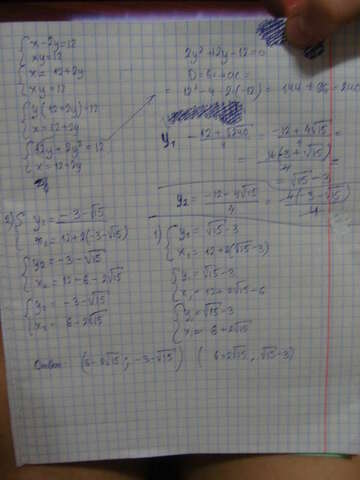 x-2y=12
xy=12
x=12+2y
xy=12
y(12+2y)=12
x=12+2y
12y+2y²=12
x=12+2y
2y²+12y-12=0
D=b²-4ac=
=12²-4·2·(-12)=144+96=240
y₁ = -12+√240/4 = -12+4√15/4 =
= 4(-3+√15)/4 =
= √15-3
y₂ = -12-4√15/4 = 4(-3-√15)/4
1) y₁=√15-3
x₁=12+2(√15-3)
y₁=√15-3
x₁=12+2√15-6
y₁=√15-3
x₁=6+2√15
2) y₂=-3-√15
x₂=12+2(-3-√15)
y₂=-3-√15
x₂=12-6-2√15
y₂=-3-√15
x₂=6-2√15
Ответ: (6-2√15; -3-√15) (6+2√15, √15-3)